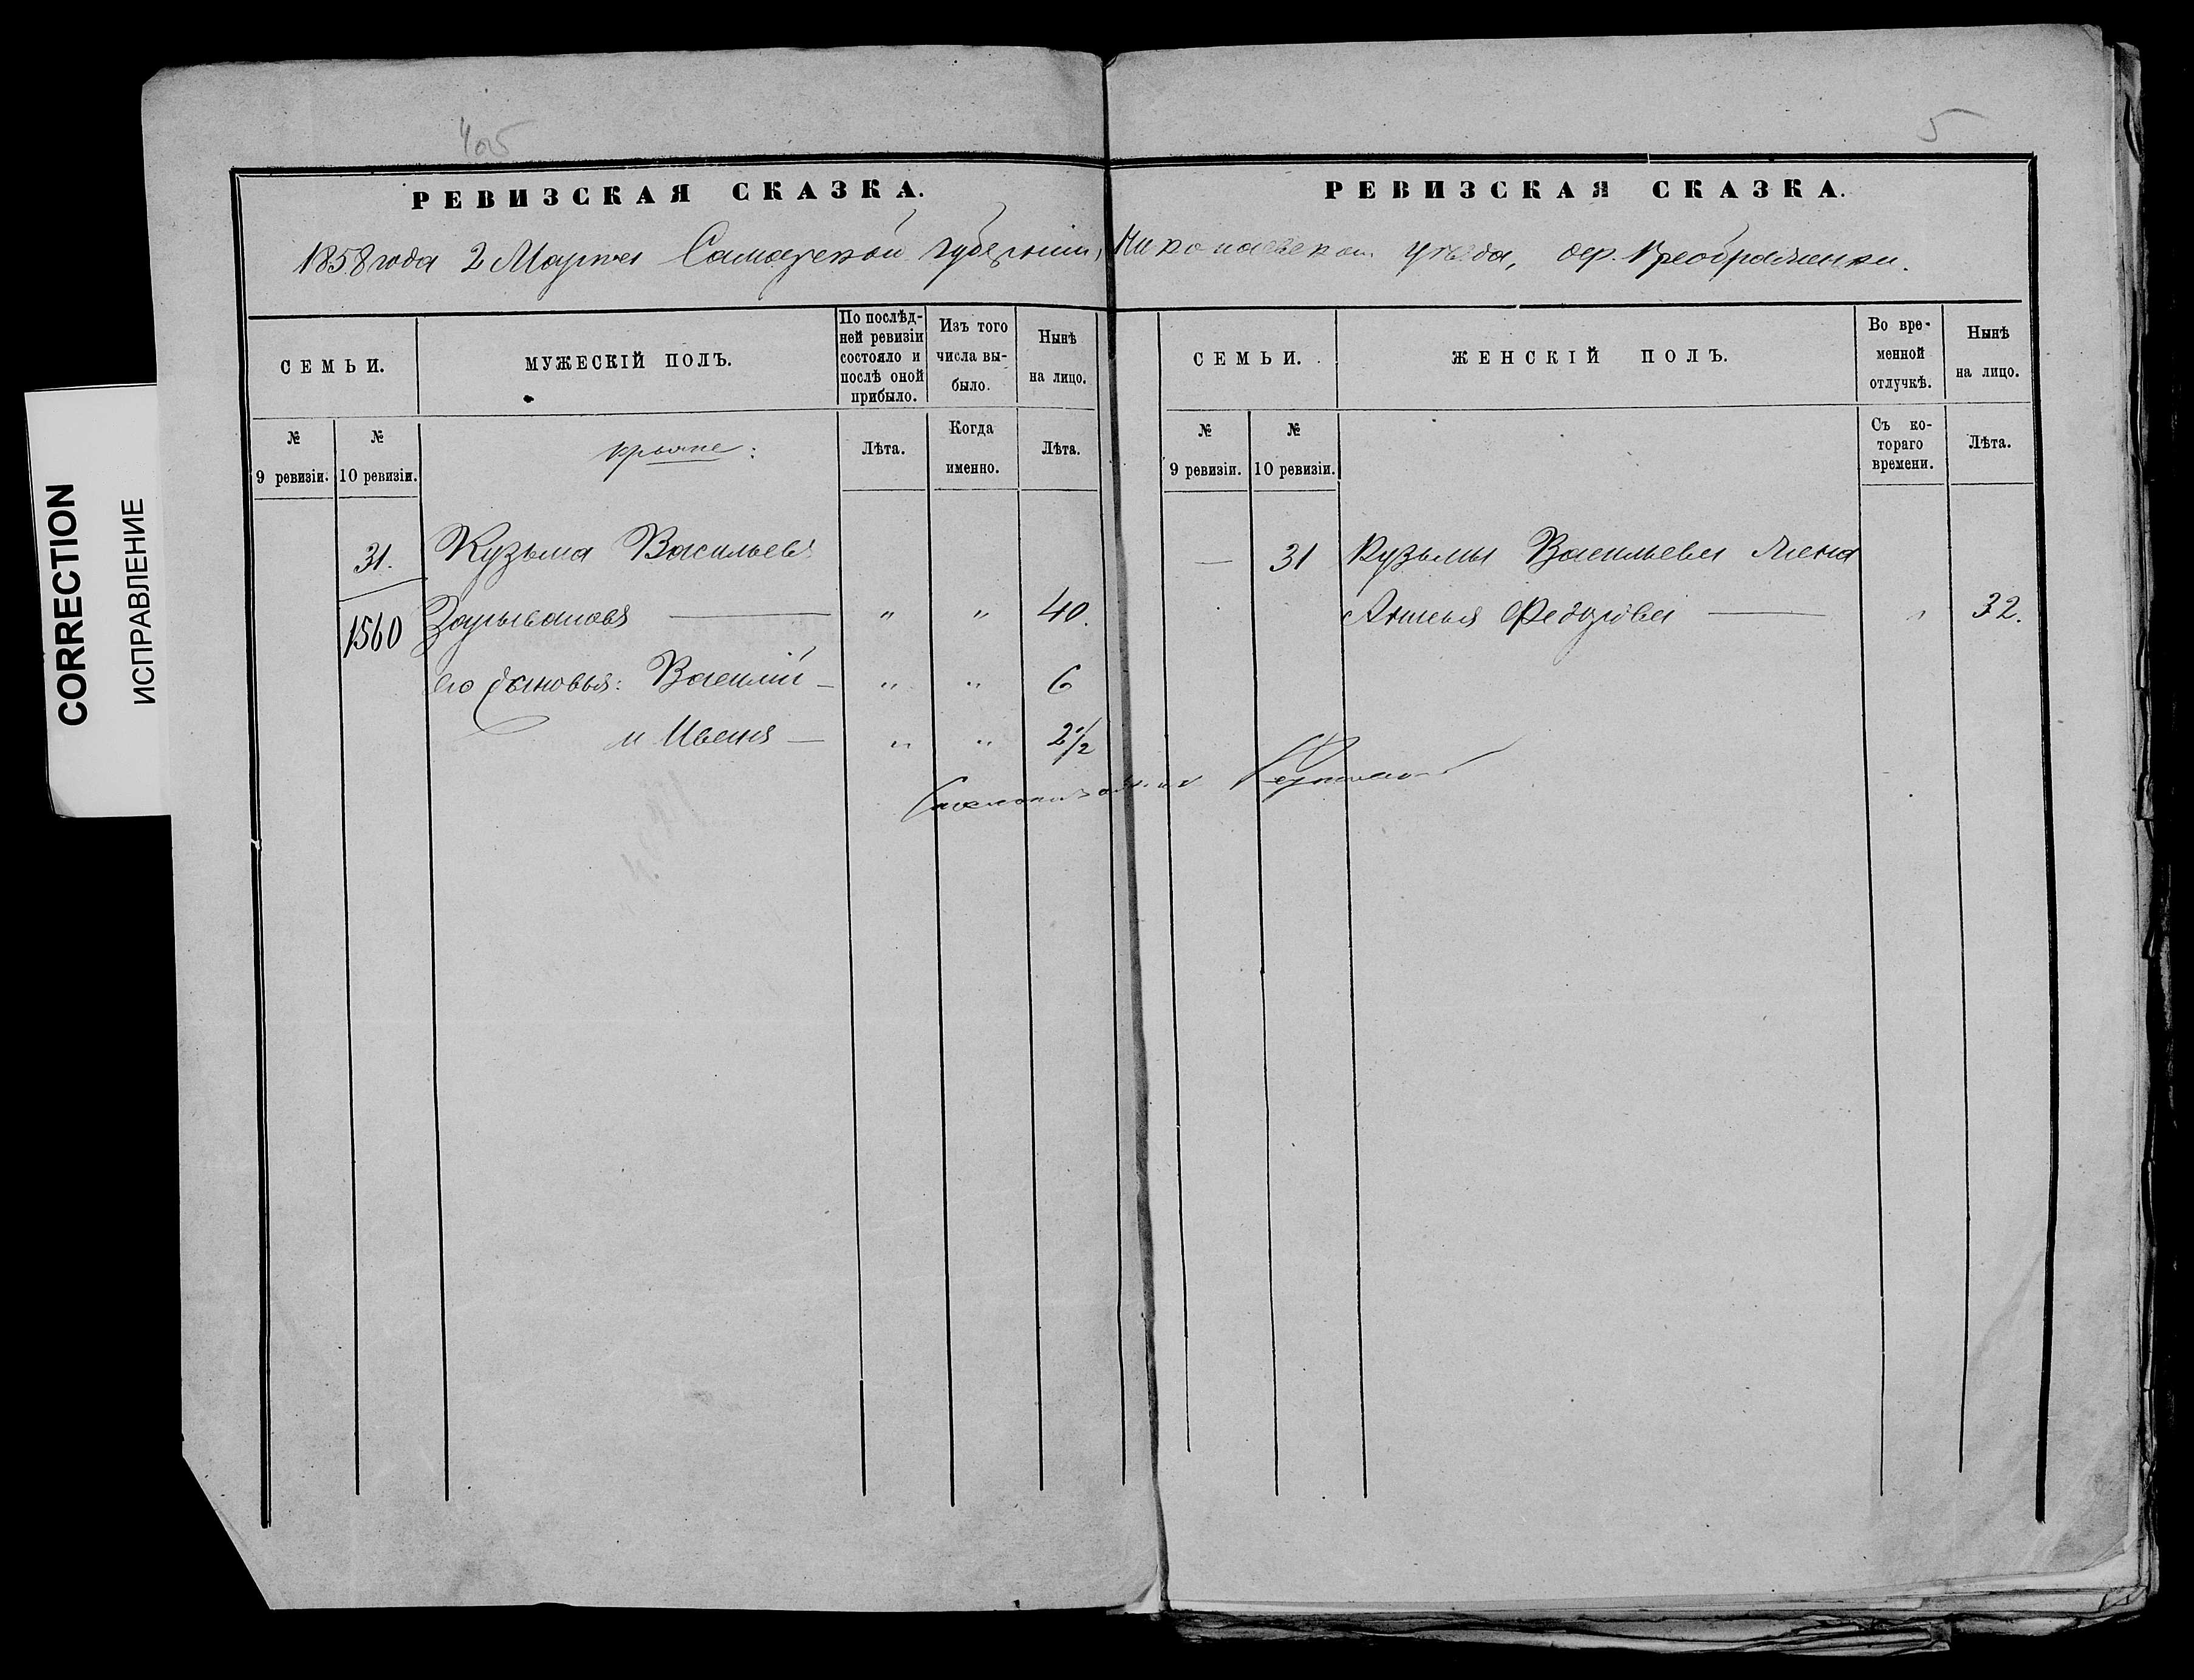 405
5
РЕВИЗСКАЯ СКАЗКА.
1858 года 2 Марта Самарской губернии,
СЕМЬИ.
МУЖЕСКІЙ ПОЛЪ.
По послѣд-
ней ревизіи
состояло и
послѣ оной
прибыло.
Изъ того
числа вы-
было.
Нынѣ
на лицо.
№
9 ревизіи.
№
10 ревизіи.
Лѣта.
Когда
именно.
Лѣта.
31. Кузьма Васильевъ
1560 " " 40.
его сыновья: Василій — " " 6
и Иванъ — " " 2 1/2
РЕВИЗСКАЯ СКАЗКА.
Николаевскаго уѣзда, дер. Преображенки.
СЕМЬИ.
ЖЕНСКІЙ ПОЛЪ.
Во вре-
менной
отлучкѣ.
Нынѣ
на лицо.
№
9 ревизіи.
№
10 ревизіи.
Съ ко-
тораго
времени.
Лѣта.
— 31 Кузьмы Васильева жена
Федорова — " 32.
CORRECTION
ИСПРАВЛЕНИЕ